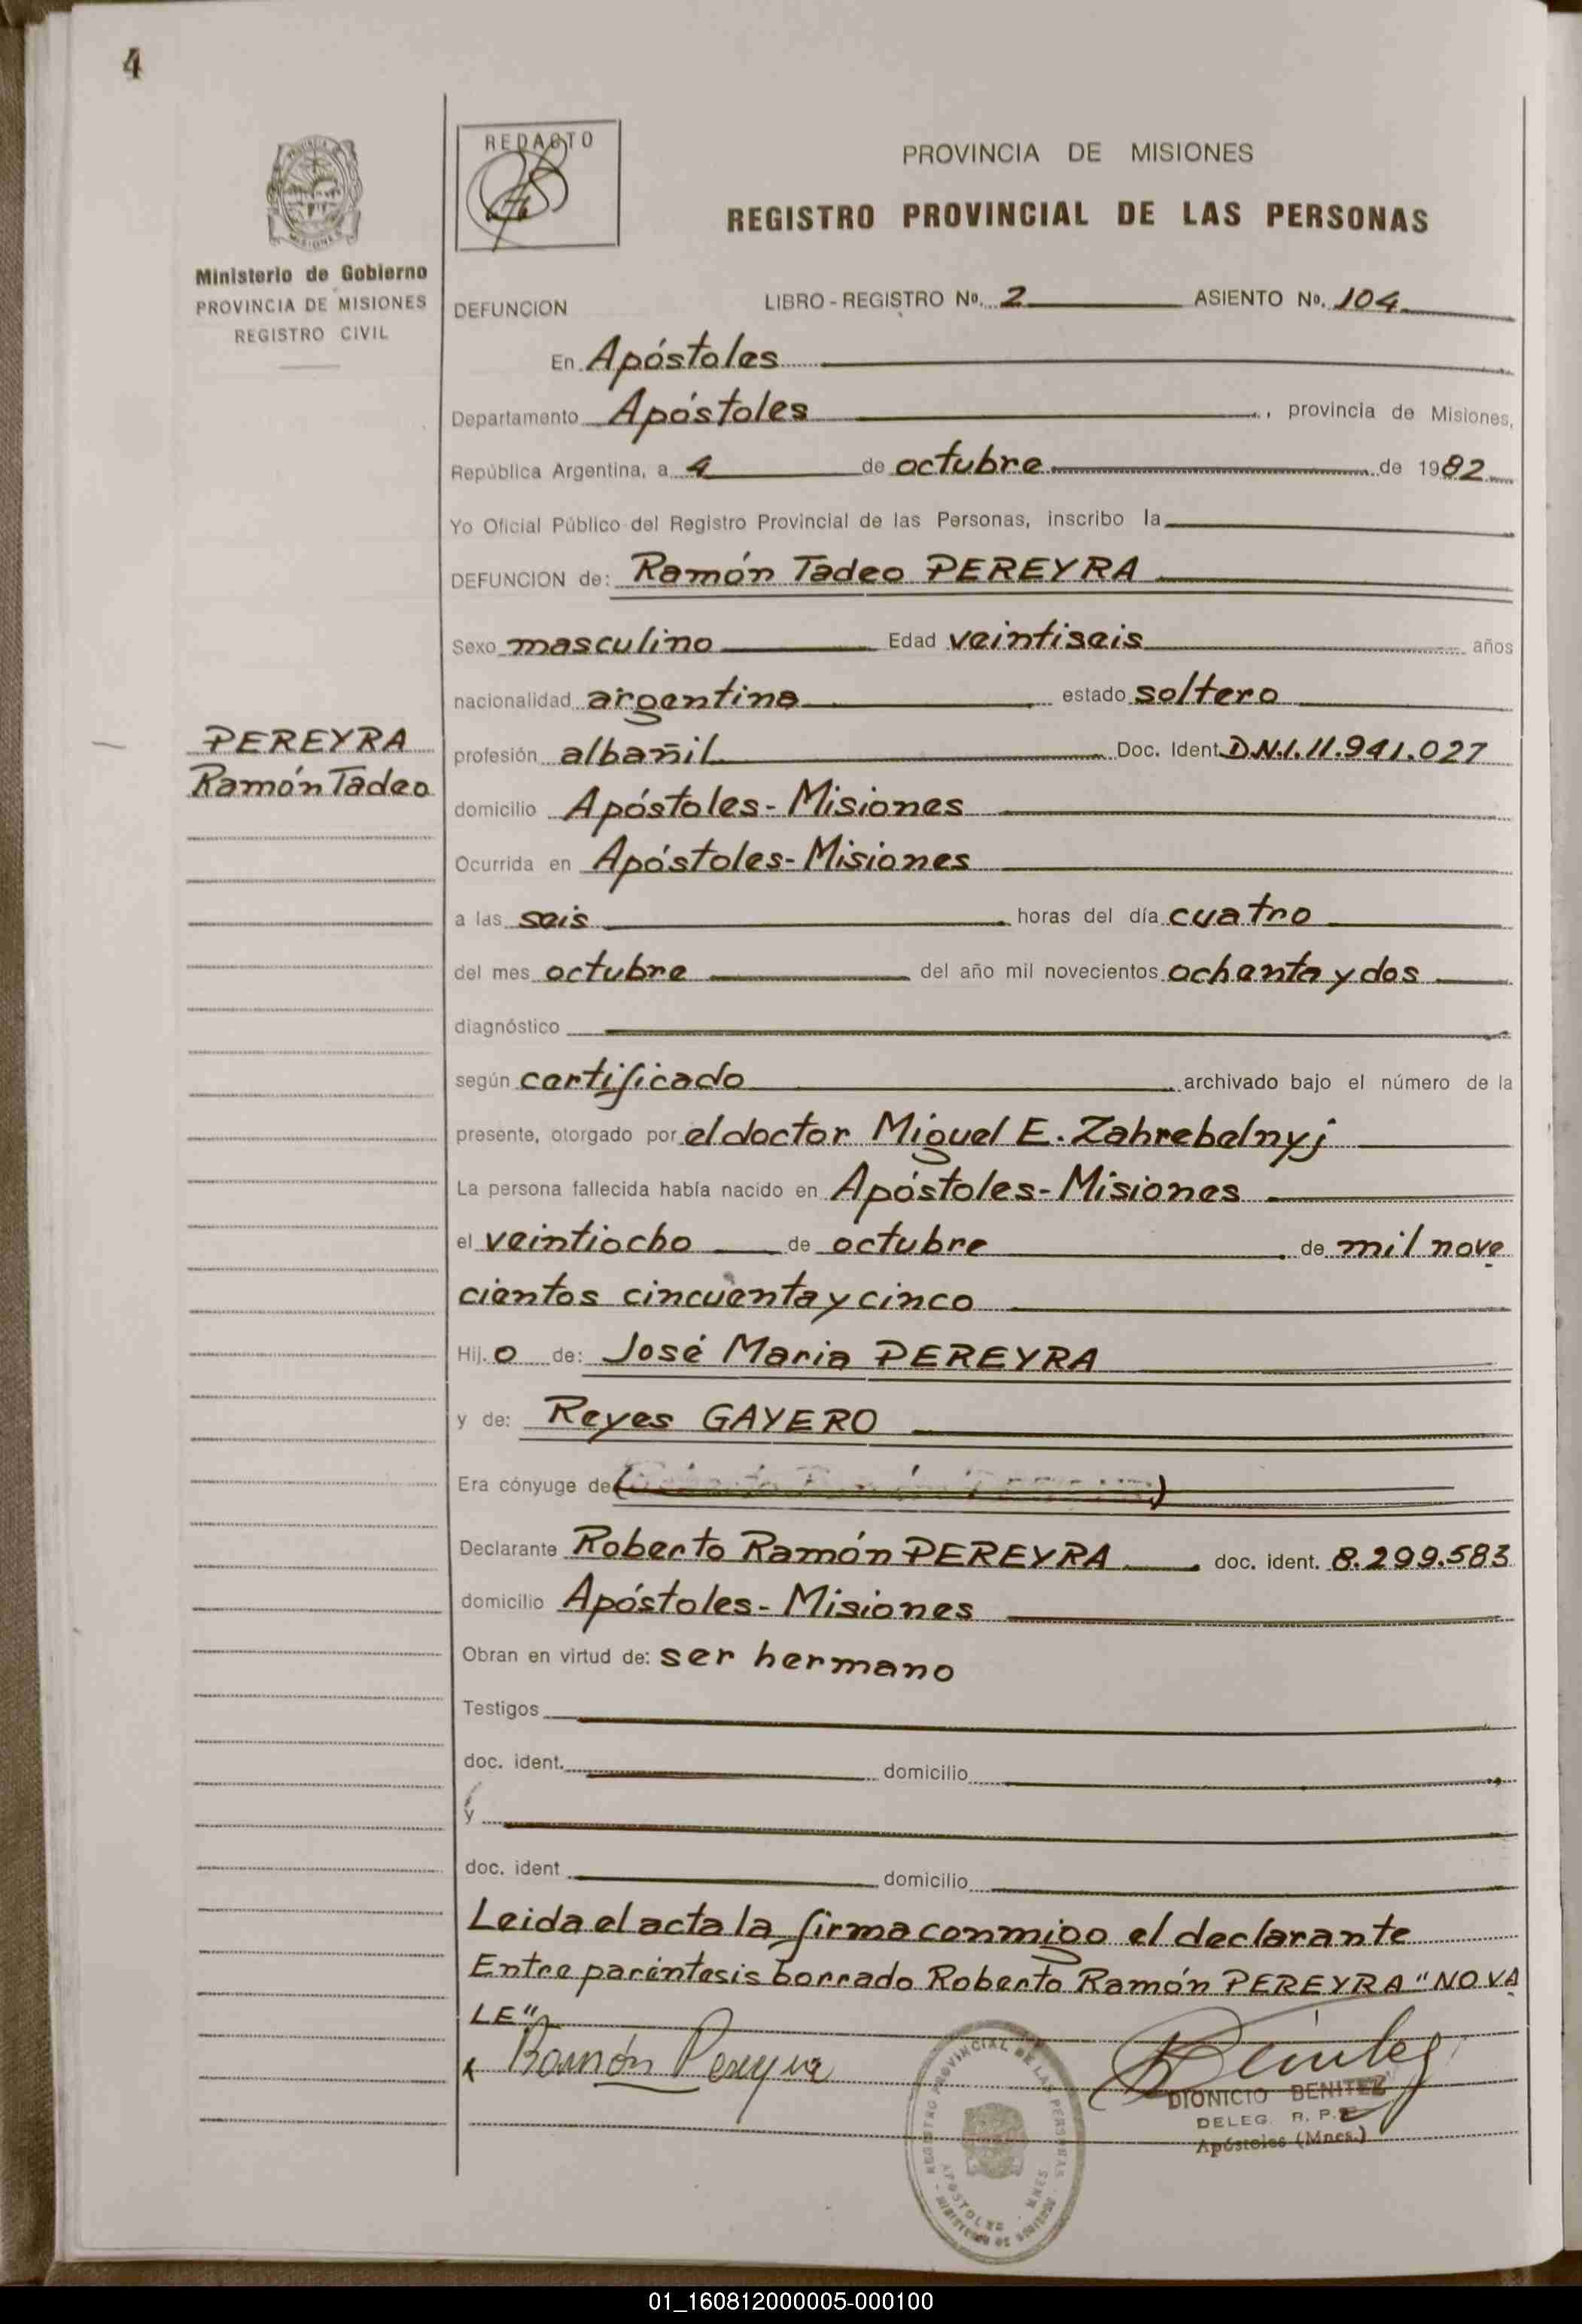 4
REDACTO
PROVINCIA DE MISIONES
REGISTRO PROVINCIAL DE LAS PERSONAS
Ministerio de Gobierno
PROVINCIA DE MISIONES
REGISTRO CIVIL
DEFUNCION LIBRO - REGISTRO Nº. 2 ASIENTO Nº. 104
En Apóstoles
Departamento Apóstoles, provincia de Misiones,
República Argentina, a 4 de octubre de 1982
Yo Oficial Público del Registro Provincial de las Personas, inscribo la
DEFUNCION de: Ramón Tadeo PEREYRA
Sexo masculino Edad veintiseis años
nacionalidad argentina estado soltero
PEREYRA
Ramón Tadeo
profesión albañil Doc. Ident. D.N.I. 11.941.027
domicilio Apóstoles - Misiones
Ocurrida en Apóstoles - Misiones
a las seis horas del día cuatro
del mes octubre del año mil novecientos ochenta y dos
diagnóstico
según certificado archivado bajo el número de la
presente, otorgado por el doctor Miguel E. Zahrebelnyj
La persona fallecida había nacido en Apóstoles - Misiones
el veintiocho de octubre de mil nove
cientos cincuenta y cinco
Hij.o de: José Maria PEREYRA
y de: Reyes GAYERO
Era cónyuge de ( )
Declarante Roberto Ramón PEREYRA doc. ident. 8.299.583
domicilio Apóstoles - Misiones
Obran en virtud de: ser hermano
Testigos
doc. ident. domicilio
y
doc. ident domicilio
Leida el acta la firma conmigo el declarante
Entre paréntesis borrado Roberto Ramón PEREYRA "NO VA
LE"
Ramón Pereyra
REGISTRO PROVINCIAL DE LAS PERSONAS
APOSTOLES - MNES
DIONICIO BENITEZ
DELEG. R. P.
Apóstoles (Mnes.)
01_160812000005-000100